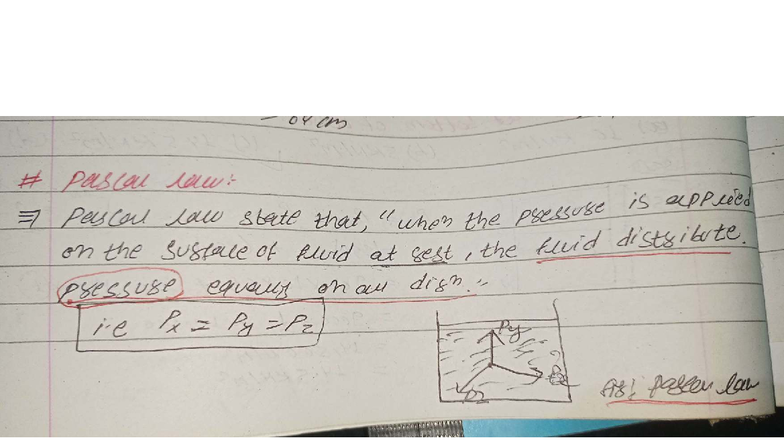 = 64 cm
# Pascal law:
⇒ Pascal law state that, "when the pressure is applied
on the surface of fluid at rest, the fluid distribute.
pressure equally on all dirⁿ."
i.e Px = Py = Pz
Py
Pz
fig: pascal law